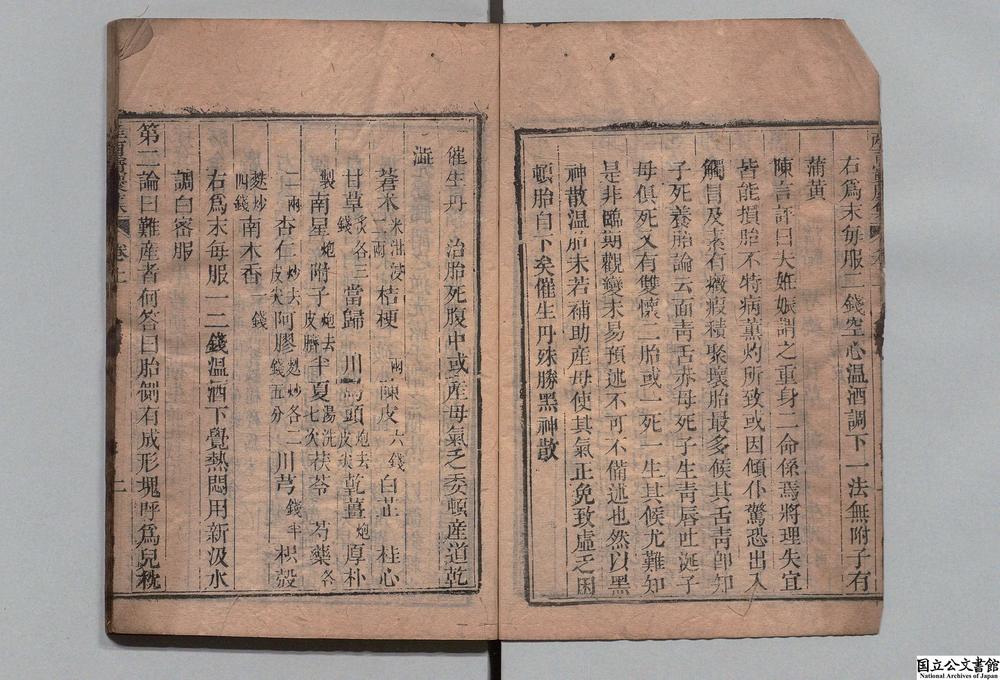 右爲末毎服二錢空心温酒調下一法無附子有
蒲黄
陳言評曰夫姙娠謂之重身二命係焉將理失宜
皆能損胎不特病薫灼所致或因傾仆驚恐出入
觸冒及素有癥瘕積聚壞胎最多候其舌靑卽知
子死養胎論云面靑舌赤母死子生靑唇吐涎子
母俱死又有雙懷二胎或一死一生其候尤難知
是非臨期觀變未易預述不可不備述也然以黑
神散温胎未若補助産母使其氣正免致虛乏困
頓胎自下矣催生丹殊勝黑神散
催生丹　治胎死腹中或産母氣乏委頓産道乾
澁
蒼朮米泔浸二兩桔梗一兩陳皮六錢白芷　桂心
甘草炙各三錢當歸　川烏頭炮去皮尖乾薑炮厚朴
製南星炮附子炮去皮臍半夏湯洗七次茯苓　芍藥各
二兩杏仁炒去皮尖阿膠麩炒各二錢五分川芎錢半枳殻
麩炒四錢南木香一錢
右爲末毎服一二錢温酒下覺熱悶用新汲水
調白蜜服
第二論曰難産者何答曰胎側有成形塊呼爲兒枕
卷上
二
国立公文書館
National Archives of Japan